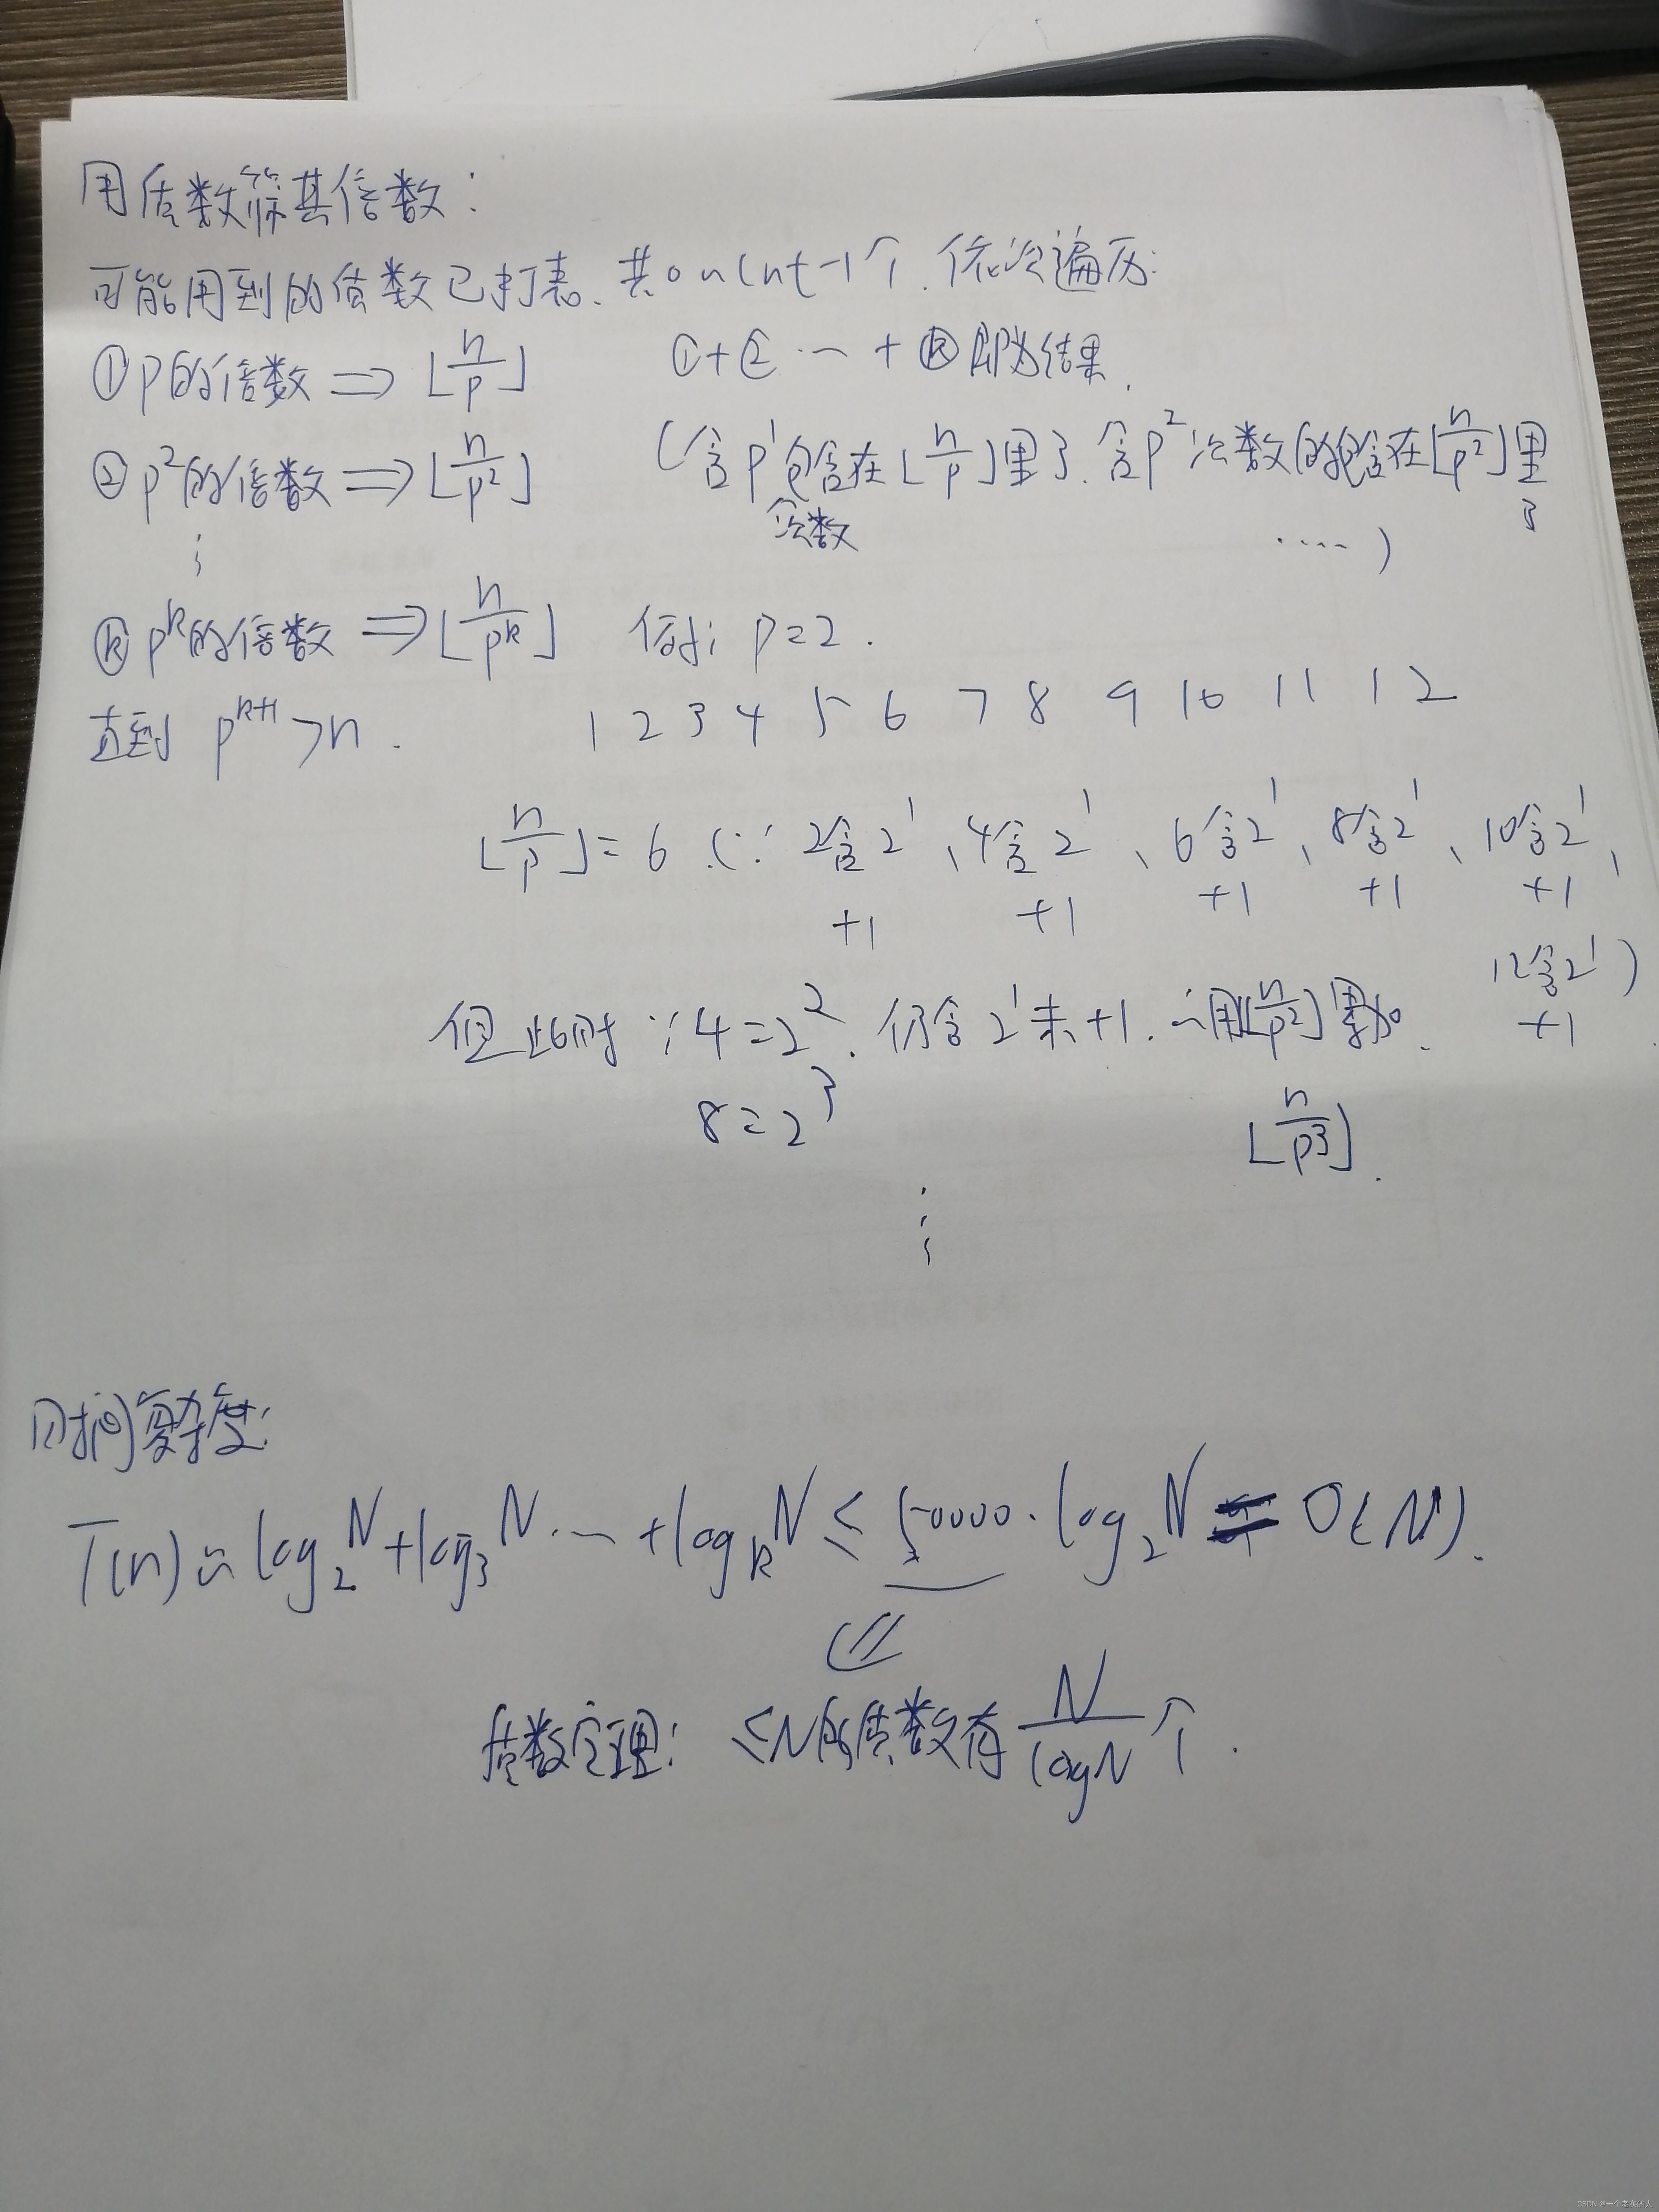 用质数筛其倍数：
可能用到的质数已打表、共0~cnt-1个、依次遍历：
①p的倍数 ⇒ ⌊n/p⌋ ①+② … + ⓚ即为结果.
②p²的倍数 ⇒ ⌊n/p²⌋ (含p¹次数包含在⌊n/p⌋里了. 含p²次数的包含在⌊n/p²⌋里了
⋮ ....)
ⓚpᵏ的倍数 ⇒ ⌊n/pᵏ⌋ 例: p=2.
直到 pᵏ⁺¹>n. 1 2 3 4 5 6 7 8 9 10 11 12
⌊n/p⌋=6 (∵ 2含2¹、4含2¹、6含2¹、8含2¹、10含2¹、
+1 +1 +1 +1 +1
12含2¹)
+1
但此时∵4=2². 仍含2¹未+1. ∴用⌊n/p²⌋累加.
8=2³ ⌊n/p³⌋.
⋮
时间复杂度:
T(n)≈log₂N+log₃N … +logₖN ≤ 50000·log₂N = O(N).
⇓
质数定理: ≤N的质数有 N/logN 个.
CSDN @一个老实的人